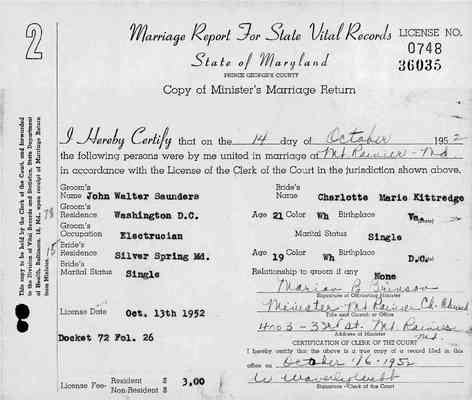 2
Marriage Report For State Vital Records
LICENSE NO.
0748
36035
State of Maryland
PRINCE GEORGE'S COUNTY
Copy of Minister's Marriage Return
This copy to be held by the Clerk of the Court, and forwarded
to the Division of Vital Records and Statistics, State Department
of Health, Baltimore, 18, Md., upon receipt of Marriage Return
from Minister.
I Hereby Certify that on the 14 day of October 1952
the following persons were by me united in marriage at Mt Rainier - Md
in accordance with the License of the Clerk of the Court in the jurisdiction shown above.
Groom's
Name John Walter Saunders
Bride's
Name Charlotte Marie Kittredge
Groom's
Residence Washington D.C.
Age 21 Color Wh Birthplace Va.(State)
Groom's
Occupation Electrucian
Marital Status Single
Bride's
Residence Silver Spring Md.
Age 19 Color Wh Birthplace D.C.
Bride's
Marital Status Single
Relationship to groom if any None
Marion B Brinson
Signature of Officiating Minister
License Date Oct. 13th 1952
Minister - Mt Rainier Ch.
Title and Church or Office
4003 - 33rd St. Mt. Rainier Md.
Address of Minister
Docket 72 Fol. 26
CERTIFICATION OF CLERK OF THE COURT
I hereby certify that the above is a true copy of a record filed in this
office on October 16 - 1952
License Fee- Resident $ 3.00
Non-Resident $
Signature - Clerk of the Court